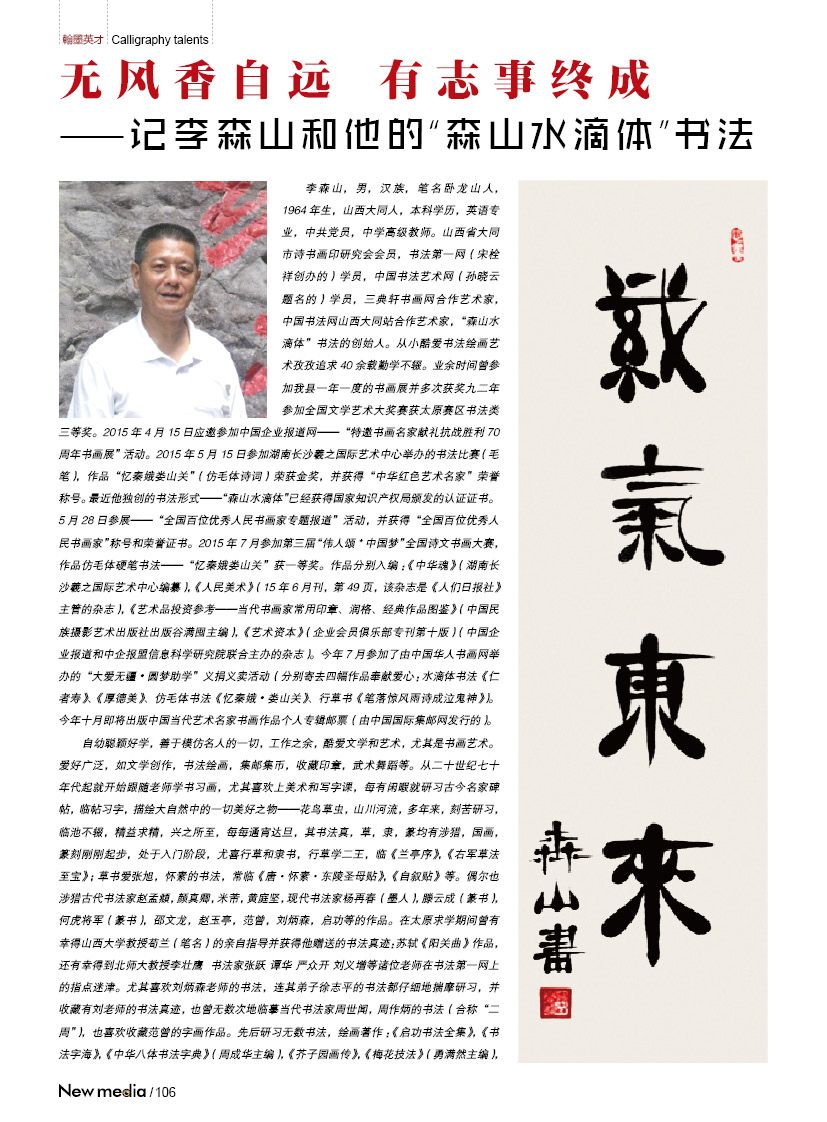 翰墨英才 Calligraphy talents
无风香自远 有志事终成
——记李森山和他的“森山水滴体”书法
李森山，男，汉族，笔名卧龙山人，
1964年生，山西大同人，本科学历，英语专
业，中共党员，中学高级教师。山西省大同
市诗书画印研究会会员，书法第一网（宋栓
祥创办的）学员，中国书法艺术网（孙晓云
题名的）学员，三典轩书画网合作艺术家，
中国书法网山西大同站合作艺术家，“森山水
滴体”书法的创始人。从小酷爱书法绘画艺
术孜孜追求40余载勤学不辍。业余时间曾参
加我县一年一度的书画展并多次获奖九二年
参加全国文学艺术大奖赛获太原赛区书法类
三等奖。2015年4月15日应邀参加中国企业报道网——“特邀书画名家献礼抗战胜利70
周年书画展”活动。2015年5月15日参加湖南长沙羲之国际艺术中心举办的书法比赛（毛
笔），作品“忆秦娥娄山关”（仿毛体诗词）荣获金奖，并获得“中华红色艺术名家”荣誉
称号。最近他独创的书法形式——“森山水滴体”已经获得国家知识产权局颁发的认证证书。
5月28日参展——“全国百位优秀人民书画家专题报道”活动，并获得“全国百位优秀人
民书画家”称号和荣誉证书。2015年7月参加第三届“伟人颂*中国梦”全国诗文书画大赛，
作品仿毛体硬笔书法——“忆秦娥娄山关”获一等奖。作品分别入编：《中华魂》（湖南长
沙羲之国际艺术中心编纂），《人民美术》（15年6月刊，第49页，该杂志是《人们日报社》
主管的杂志），《艺术品投资参考——当代书画家常用印章、润格、经典作品图鉴》（中国民
族摄影艺术出版社出版谷满囤主编），《艺术资本》（企业会员俱乐部专刊第十版）（中国企
业报道和中企报盟信息科学研究院联合主办的杂志）。今年7月参加了由中国华人书画网举
办的“大爱无疆·圆梦助学”义捐义卖活动（分别寄去四幅作品奉献爱心；水滴体书法《仁
者寿》、《厚德美》、仿毛体书法《忆秦娥·娄山关》、行草书《笔落惊风雨诗成泣鬼神》）。
今年十月即将出版中国当代艺术名家书画作品个人专辑邮票（由中国国际集邮网发行的）。
自幼聪颖好学，善于模仿名人的一切，工作之余，酷爱文学和艺术，尤其是书画艺术。
爱好广泛，如文学创作，书法绘画，集邮集币，收藏印章，武术舞蹈等。从二十世纪七十
年代起就开始跟随老师学书习画，尤其喜欢上美术和写字课，每有闲暇就研习古今名家碑
帖，临帖习字，描绘大自然中的一切美好之物——花鸟草虫，山川河流，多年来，刻苦研习，
临池不辍，精益求精，兴之所至，每每通宵达旦，其书法真，草，隶，篆均有涉猎，国画，
篆刻刚刚起步，处于入门阶段，尤喜行草和隶书，行草学二王，临《兰亭序》，《右军草法
至宝》；草书爱张旭，怀素的书法，常临《唐·怀素·东陵圣母贴》，《自叙贴》等。偶尔也
涉猎古代书法家赵孟頫，颜真卿，米芾，黄庭坚，现代书法家杨再春（墨人），滕云成（篆书），
何虎将军（篆书），邵文龙，赵玉亭，范曾，刘炳森，启功等的作品。在太原求学期间曾有
幸得山西大学教授荀兰（笔名）的亲自指导并获得他赠送的书法真迹；苏轼《阳关曲》作品，
还有幸得到北师大教授李壮鹰 书法家张跃 谭华 严众开 刘义增等诸位老师在书法第一网上
的指点迷津。尤其喜欢刘炳森老师的书法，连其弟子徐志平的书法都仔细地揣摩研习，并
收藏有刘老师的书法真迹，也曾无数次地临摹当代书法家周世闻，周作炳的书法（合称“二
周”），也喜欢收藏范曾的字画作品。先后研习无数书法，绘画著作：《启功书法全集》，《书
法字海》，《中华八体书法字典》（周成华主编），《芥子园画传》，《梅花技法》（勇满然主编），
氣
東
來
山
書
New media / 106